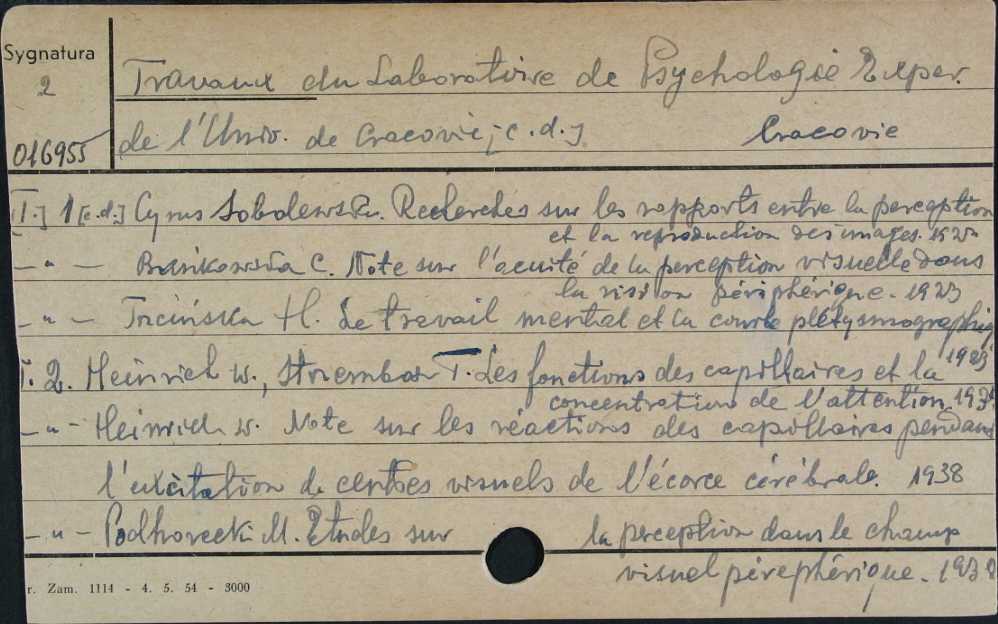 Sygnatura
2
016955
Travaux du Laboratoire de Psychologie Exper.
de l'Univ. de Cracovie; c. d.] Cracovie
[T.] 1 [c.d.] Cyrus Sobolewski. Recherches sur les rapports entre la perception
et la reproduction des images. 192
— " — Bańkowska C. Note sur l'acuité de la perception visuelle dans
la vision périphérique. 1923
— " — Trcińska H. Le travail mental et la courbe plétysmographiq
1923
T. 2. Heinrich W., T. Les fonctions des capillaires et la
concentration de l'attention, 193
— " — Heinrich W. Note sur les réactions des capillaires pendant
l'excitation de centres visuels de l'écorce cérébrale. 1938
— " — Podhorecki M. Etudes sur la perception dans le champ
visuel pérephérique. 1938
r. Zam. 1114 - 4. 5. 54 - 3000